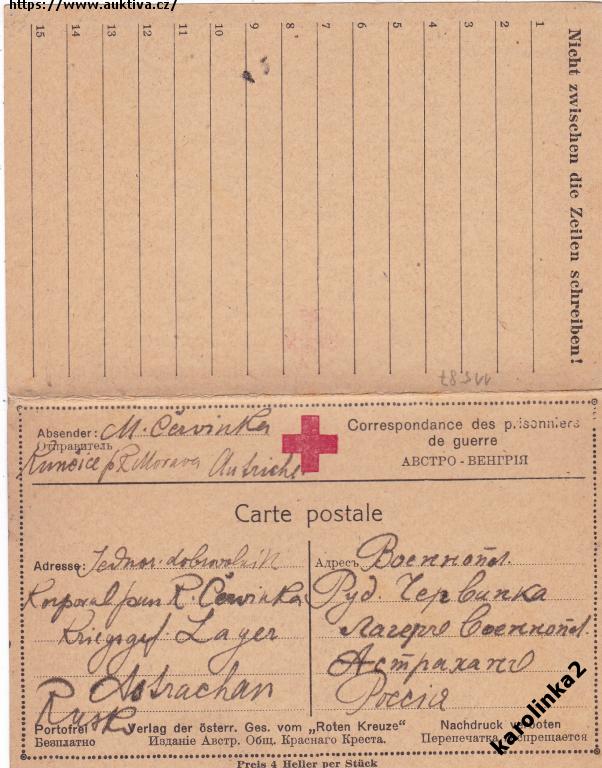 https://www.auktiva.cz/
Nicht zwischen die Zeilen schreiben!
1
2
3
4
5
6
7
8
9
10
11
12
13
14
15
115.87
Absender: M. Červinka
Отправитель
Kunčice p/ Morava Autriche
Correspondance des prisonniers
de guerre
АВСТРО-ВЕНГРІЯ
Carte postale
Adresse: Jednor. dobrovolník
Korporal pan R. Červinka
Kriegsgef. Lager
Astrachan
Rusko
Адресъ Военнопл.
Руд. Червинка
Лагерь Военнопл.
Астрахань
Россія
Portofrei Verlag der österr. Ges. vom „Roten Kreuze“ Nachdruck verboten
Безплатно Изданіе Австр. Общ. Краснаго Креста. Перепечатка воспрещается
Preis 4 Heller per Stück
karolinka2